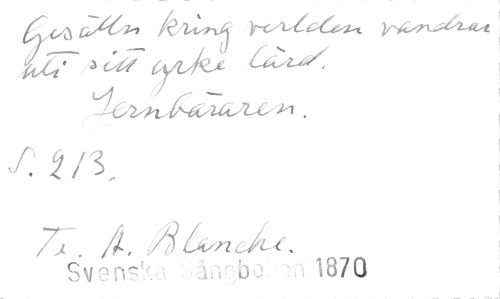 Gesälln kring verlden vandrar
uti sitt yrke lärd.
Jernbäraren.
S. 213.
Tr. A. Blanche.
Svenska Sångboken 1870